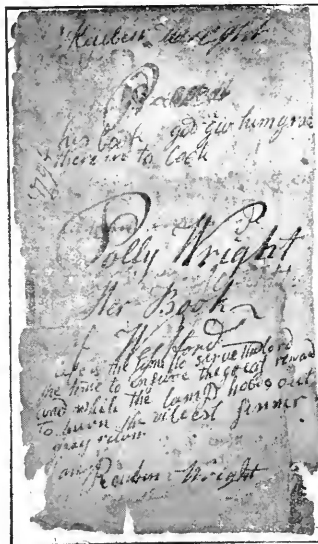 Reubin Wright
his book god giv him grac
there in to look
Polly Wright
Her Book
of Westford
Life is the time to serve the lord
the time to ensure the great reward
and while the lamp holds out
to burn the vilest sinner
may return
Reuben Wright